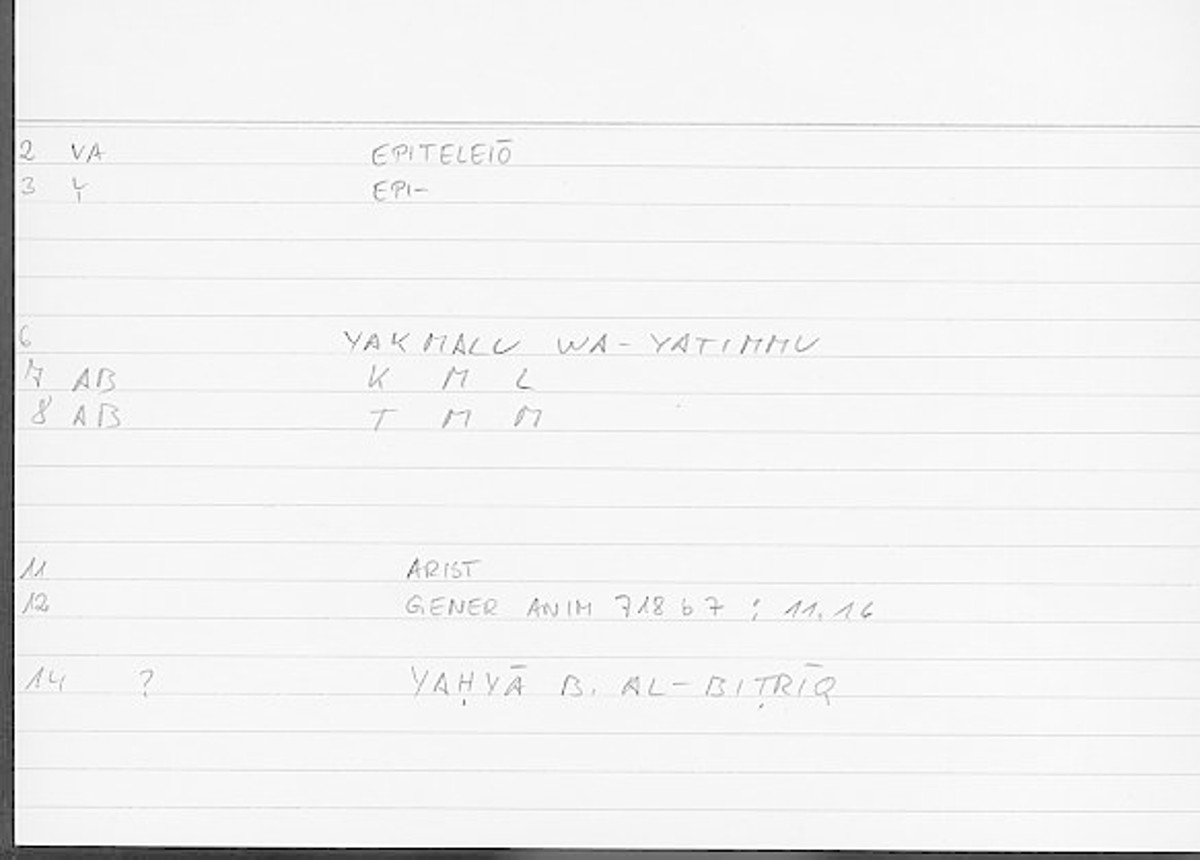 2 VA EPITELEIŌ
3 Y EPI-
6 YAKMALU WA-YATIMMU
7 AB K M L
8 AB T M M
11 ARIST
12 GENER ANIM 718 b 7 ; 11.16
14 ? YAḤYĀ B. AL-BIṬRĪQ